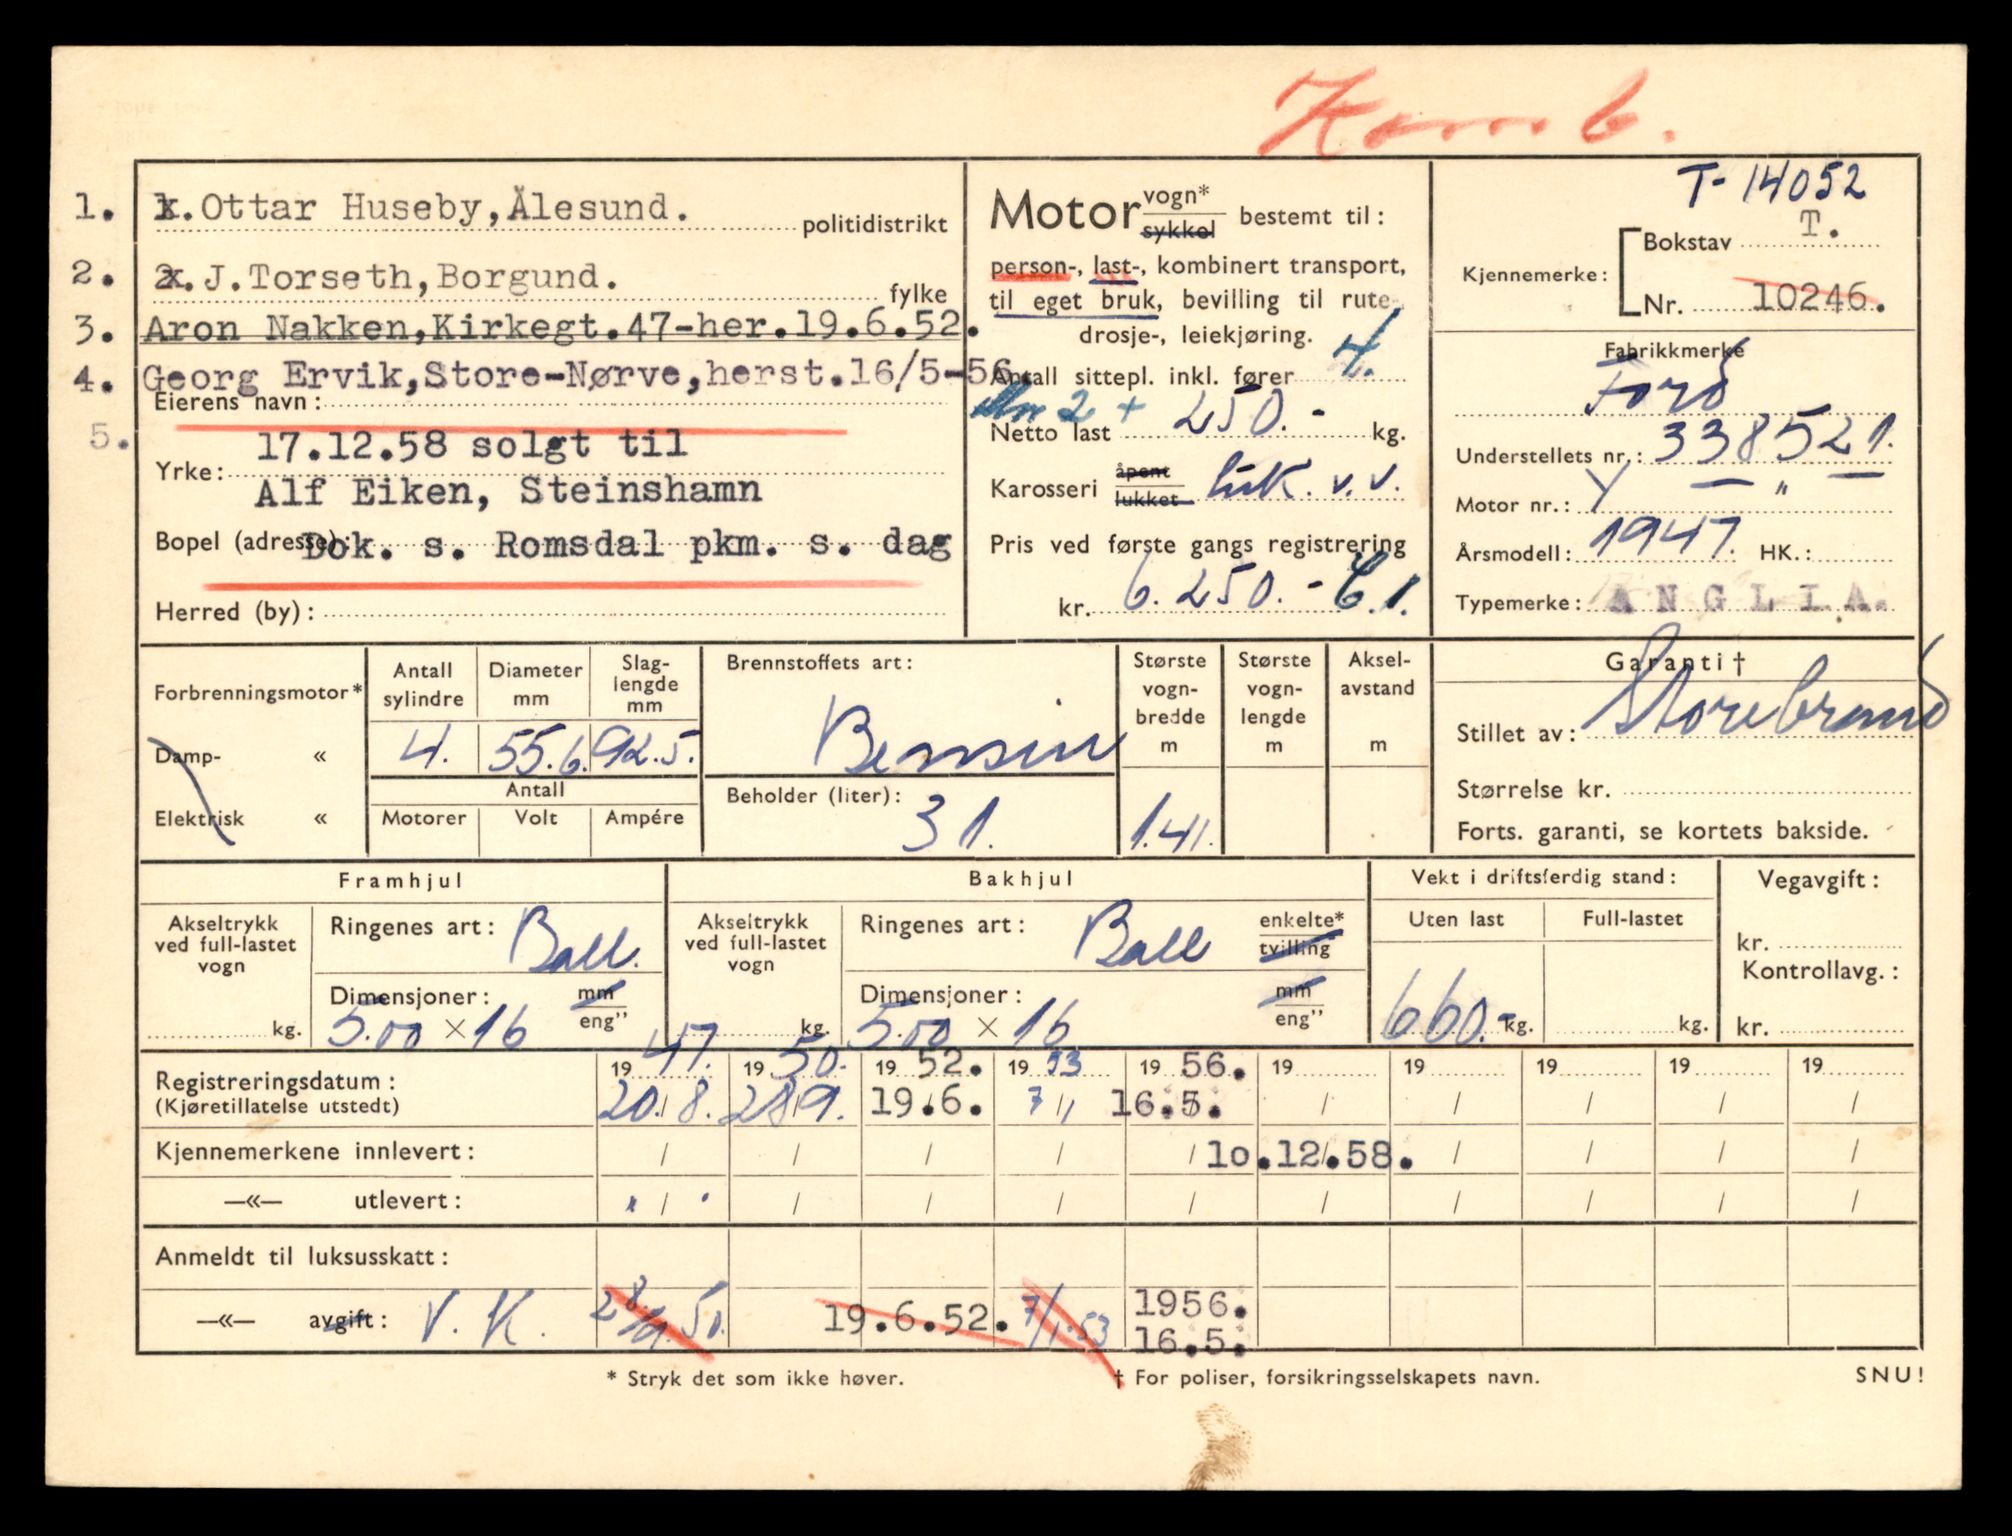 Komb.
1. 1x. Ottar Huseby, Ålesund. politidistrikt
2. 2x. J.Torseth, Borgund. fylke
3. Aron Nakken, Kirkegt.47-her.19.6.52.
4. Georg Ervik, Store-Nørve, herst.16/5-56.
Eierens navn:
5. 17.12.58 solgt til
Yrke:
Alf Eiken, Steinshamn
Bopel (adresse): Dok. s. Romsdal pkm. s. dag
Herred (by):
Motor vogn* sykkel bestemt til:
person-, last-, kombinert transport,
til eget bruk, bevilling til rute-
drosje-, leiekjøring.
Antall sittepl. inkl. fører 4.
2 +
Netto last 250.- kg.
Karosseri åpent lukket luk. v.v.
Pris ved første gangs registrering
kr. 6.250.- C.1.
T-14052
Kjennemerke: Bokstav T.
Nr. 10246.
Fabrikkmerke
Ford
Understellets nr.: 338521.
Motor nr.: Y — " —
Årsmodell: 1947. HK.:
Typemerke: ANGLIA.
Forbrenningsmotor*
Damp- «
Elektrisk «
Antall sylindre Diameter mm Slag-lengde mm
4. 55.6. 92.5.
Antall
Motorer Volt Ampére
Brennstoffets art:
Bensin
Beholder (liter):
31.
Største vogn-bredde m Største vogn-lengde m Aksel-avstand m
1.41.
Garanti†
Stillet av: Storebrand
Størrelse kr.
Forts. garanti, se kortets bakside.
Framhjul
Akseltrykk ved full-lastet vogn
kg.
Ringenes art: Ball.
Dimensjoner: mm eng"
5.00 × 16
Bakhjul
Akseltrykk ved full-lastet vogn
kg.
Ringenes art: Ball enkelte* tvilling
Dimensjoner: mm eng"
5.00 × 16
Vekt i driftsferdig stand:
Uten last Full-lastet
660.- kg. kg.
Vegavgift:
kr.
Kontrollavg.:
kr.
Registreringsdatum: 1947. 1950. 1952. 1953 1956. 19 19 19 19 19
(Kjøretillatelse utstedt) 20./8. 28/9. 19.6. 7/1 16.5. / / / / /
Kjennemerkene innlevert: / / / / / 10.12.58. / / / /
—«— utlevert: / / / / / / / / / /
Anmeldt til luksusskatt:
—«— avgift: V. K. 28/9.50. 19.6.52. 7/1.53 1956.
16.5.
* Stryk det som ikke høver.
† For poliser, forsikringsselskapets navn.
SNU!